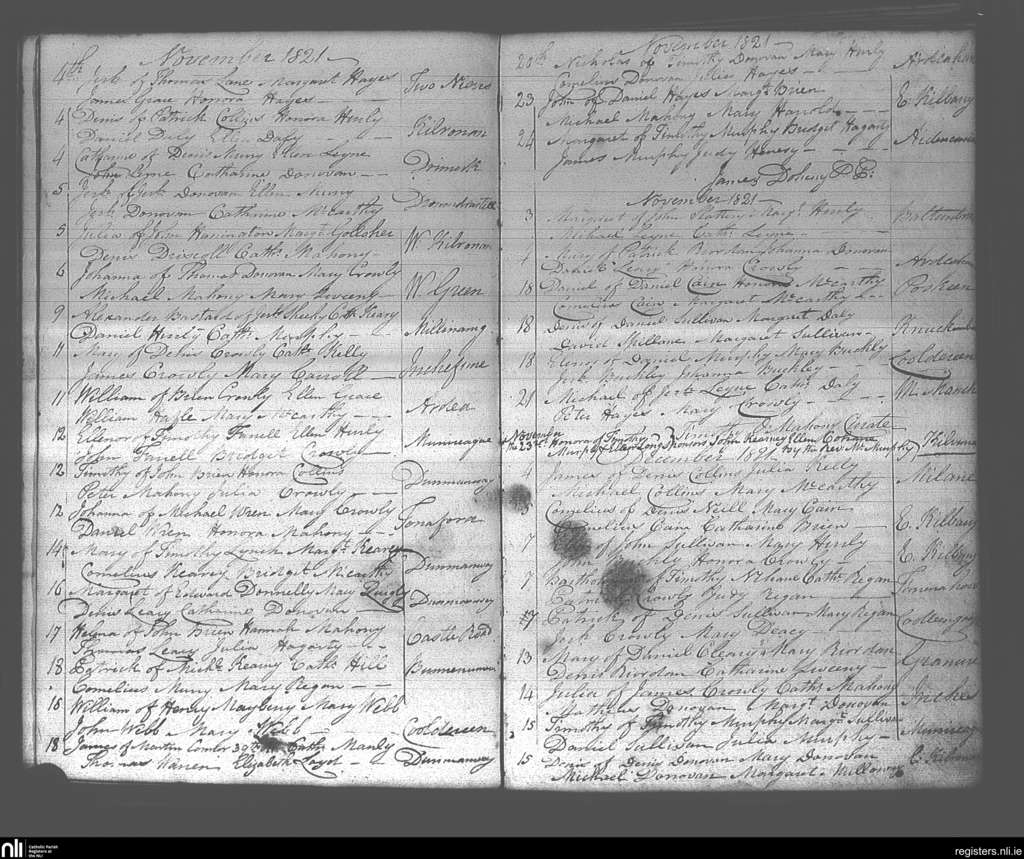 November 1821
4th Jerh of Thomas Lane Margaret Hayes
James Grace Honora Hayes Two Noses
4 Denis of Patrick Collins Honora Hurly
Daniel Daly Ellen Daly Kilronan
4 Catharine of Denis Murry Ellen Leyne
John Leyne Catharine Donovan Drimock
5 Jerh of Jerh Donovan Ellen Murry
Jerh Donovan Catharine McCarthy
5 Julia of Tim Hanington Margt
Denis Driscoll Cathe Mahony W. Kilronan
6 Johanna of Thomas Donovan Mary Crowly
Michael Mahony Mary Sweeny W. Green
9 Alexander Bastard of Jerh Sheehy Cathe Keary
Daniel Hurly Cathe Murphy
11 Mary of Denis Crowly Cathe Kelly
James Crowly Mary Carroll
11 William of Brien Crowly Ellen Grace
William Hayle Mary McCarthy Ardea
12 Ellenor of Timothy Farrell Ellen Hurly
Farrell Bridget Crowly
12 Timothy of John Brien Honora Collins
Peter Mahony Julia Crowly Dunmanway
12 Johanna of Michael Wren Mary Crowly
Daniel Wren Honora Mahony Tonafora
14 Mary of Timothy Lynch Margt Kearey
Cornelius Kearey Bridget McCarthy Dunmanway
16 Margaret of Edward Donnelly Mary Quigly
Denis Leary Catharine Donovan Dunmanway
17 of John Brien Hannah Mahony
Francis Leary Julia Hagarty Castle Road
18 Patrick of Michl Kearey Cathe Hill
Cornelius Murry Mary Regan
18 William of Henry Mary Webb
John Webb Mary Webb Cooldereen
18 James of Martin 39th Cathe Manly
Thomas Warren Elizabeth Loyd Dunmanway
November 1821
20th Nicholas of Timothy Donovan Mary Hurly
Cornelius Donovan Julia Hayes
23 John of Daniel Hayes Margt Brien
Michael Mahony Mary E. Kilbarry
24 Margaret of Timothy Murphy Bridget Hagarty
James Murphy Judy
James Doheny P.P.
November 1821
3 Margaret of John Slattery Margt Hurly
Michael Leyne Cathe Leyne
Mary of Patrick Riordan Johanna Donovan
Daniel Leary Honora Crowly
18 Daniel of Daniel Cain Honora McCarthy
Cornelius Cain Margaret McCarthy
18 Denis of Daniel Sullivan Margaret Daly
David Margaret Sullivan
18 of Daniel Murphy Mary Buckly
Jerh Buckly Johanna Buckley Cooldereen
21 Michael of Jerh Leyne Cathe Daly
Peter Hayes Mary Crowly
Timothy O'Mahony Curate
November the 23rd Honora of Timothy Murphy Ellen Long Sponsors John Kearney Ellen by the Rev. Mr Murphy
December 1821
James of Denis Collins Julia Kelly
Michael Collins Mary McCarthy Milane
Cornelius of Denis Neill Mary Cain
Cornelius Cain Catharine Brien E. Kilbarry
7 of John Sullivan Mary Hurly
John Honora Crowly E. Kilbarry
7 of Timothy Cathe Regan
Crowly Judy Regan
Patrick of Denis Sullivan Mary Regan
Jerh Crowly Mary Deacy
13 Mary of Daniel Cleary Mary Riordan
Denis Riordan Catharine Sweeny
14 Julia of James Crowly Cathe Mahony
Donovan Margt Donovan
15 Timothy of Timothy Murphy Margt Sullivan
Daniel Sullivan Julia Murphy
15 Denis of Denis Donovan Mary Donovan
Michael Donovan Margaret
nli
Catholic Parish
Registers at
the NLI
registers.nli.ie